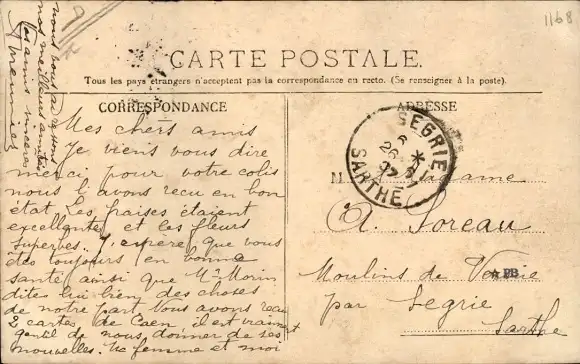 1168
CARTE POSTALE.
Tous les pays étrangers n'acceptent pas la correspondance en recto. (Se renseigner à la poste).
CORRESPONDANCE
Mes chers amis
Je viens vous dire
merci pour votre colis
nous l'avons recu en bon
état. Les fraises étaient
excellentes et les fleurs
superbes. J'espère que vous
êtes toujours en bonne
santé ainsi que Mr Morin
dites lui bien des choses
de notre part. Nous avons recu
2 cartes de Caen, il est vraiment
gentil de nous donner de ses
nouvelles. Ma femme et moi
nous vous adressons
nos meilleures amitiés
Vos amis sincères
Meunier
ADRESSE
SEGRIE
SARTHE
Madame
A. Soreau
Moulins de
par Segrie
Sarthe